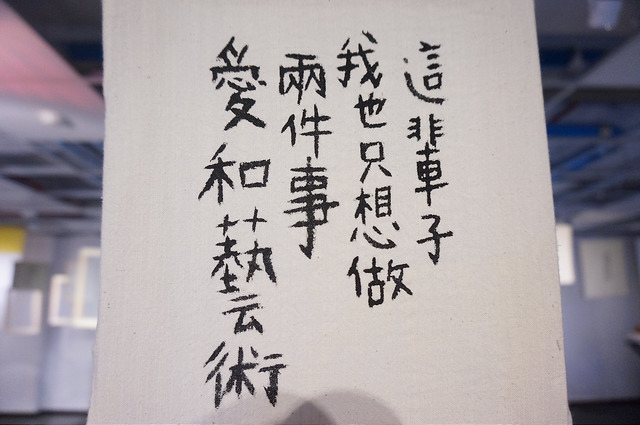 這輩子
我也只想做
兩件事
愛和藝術